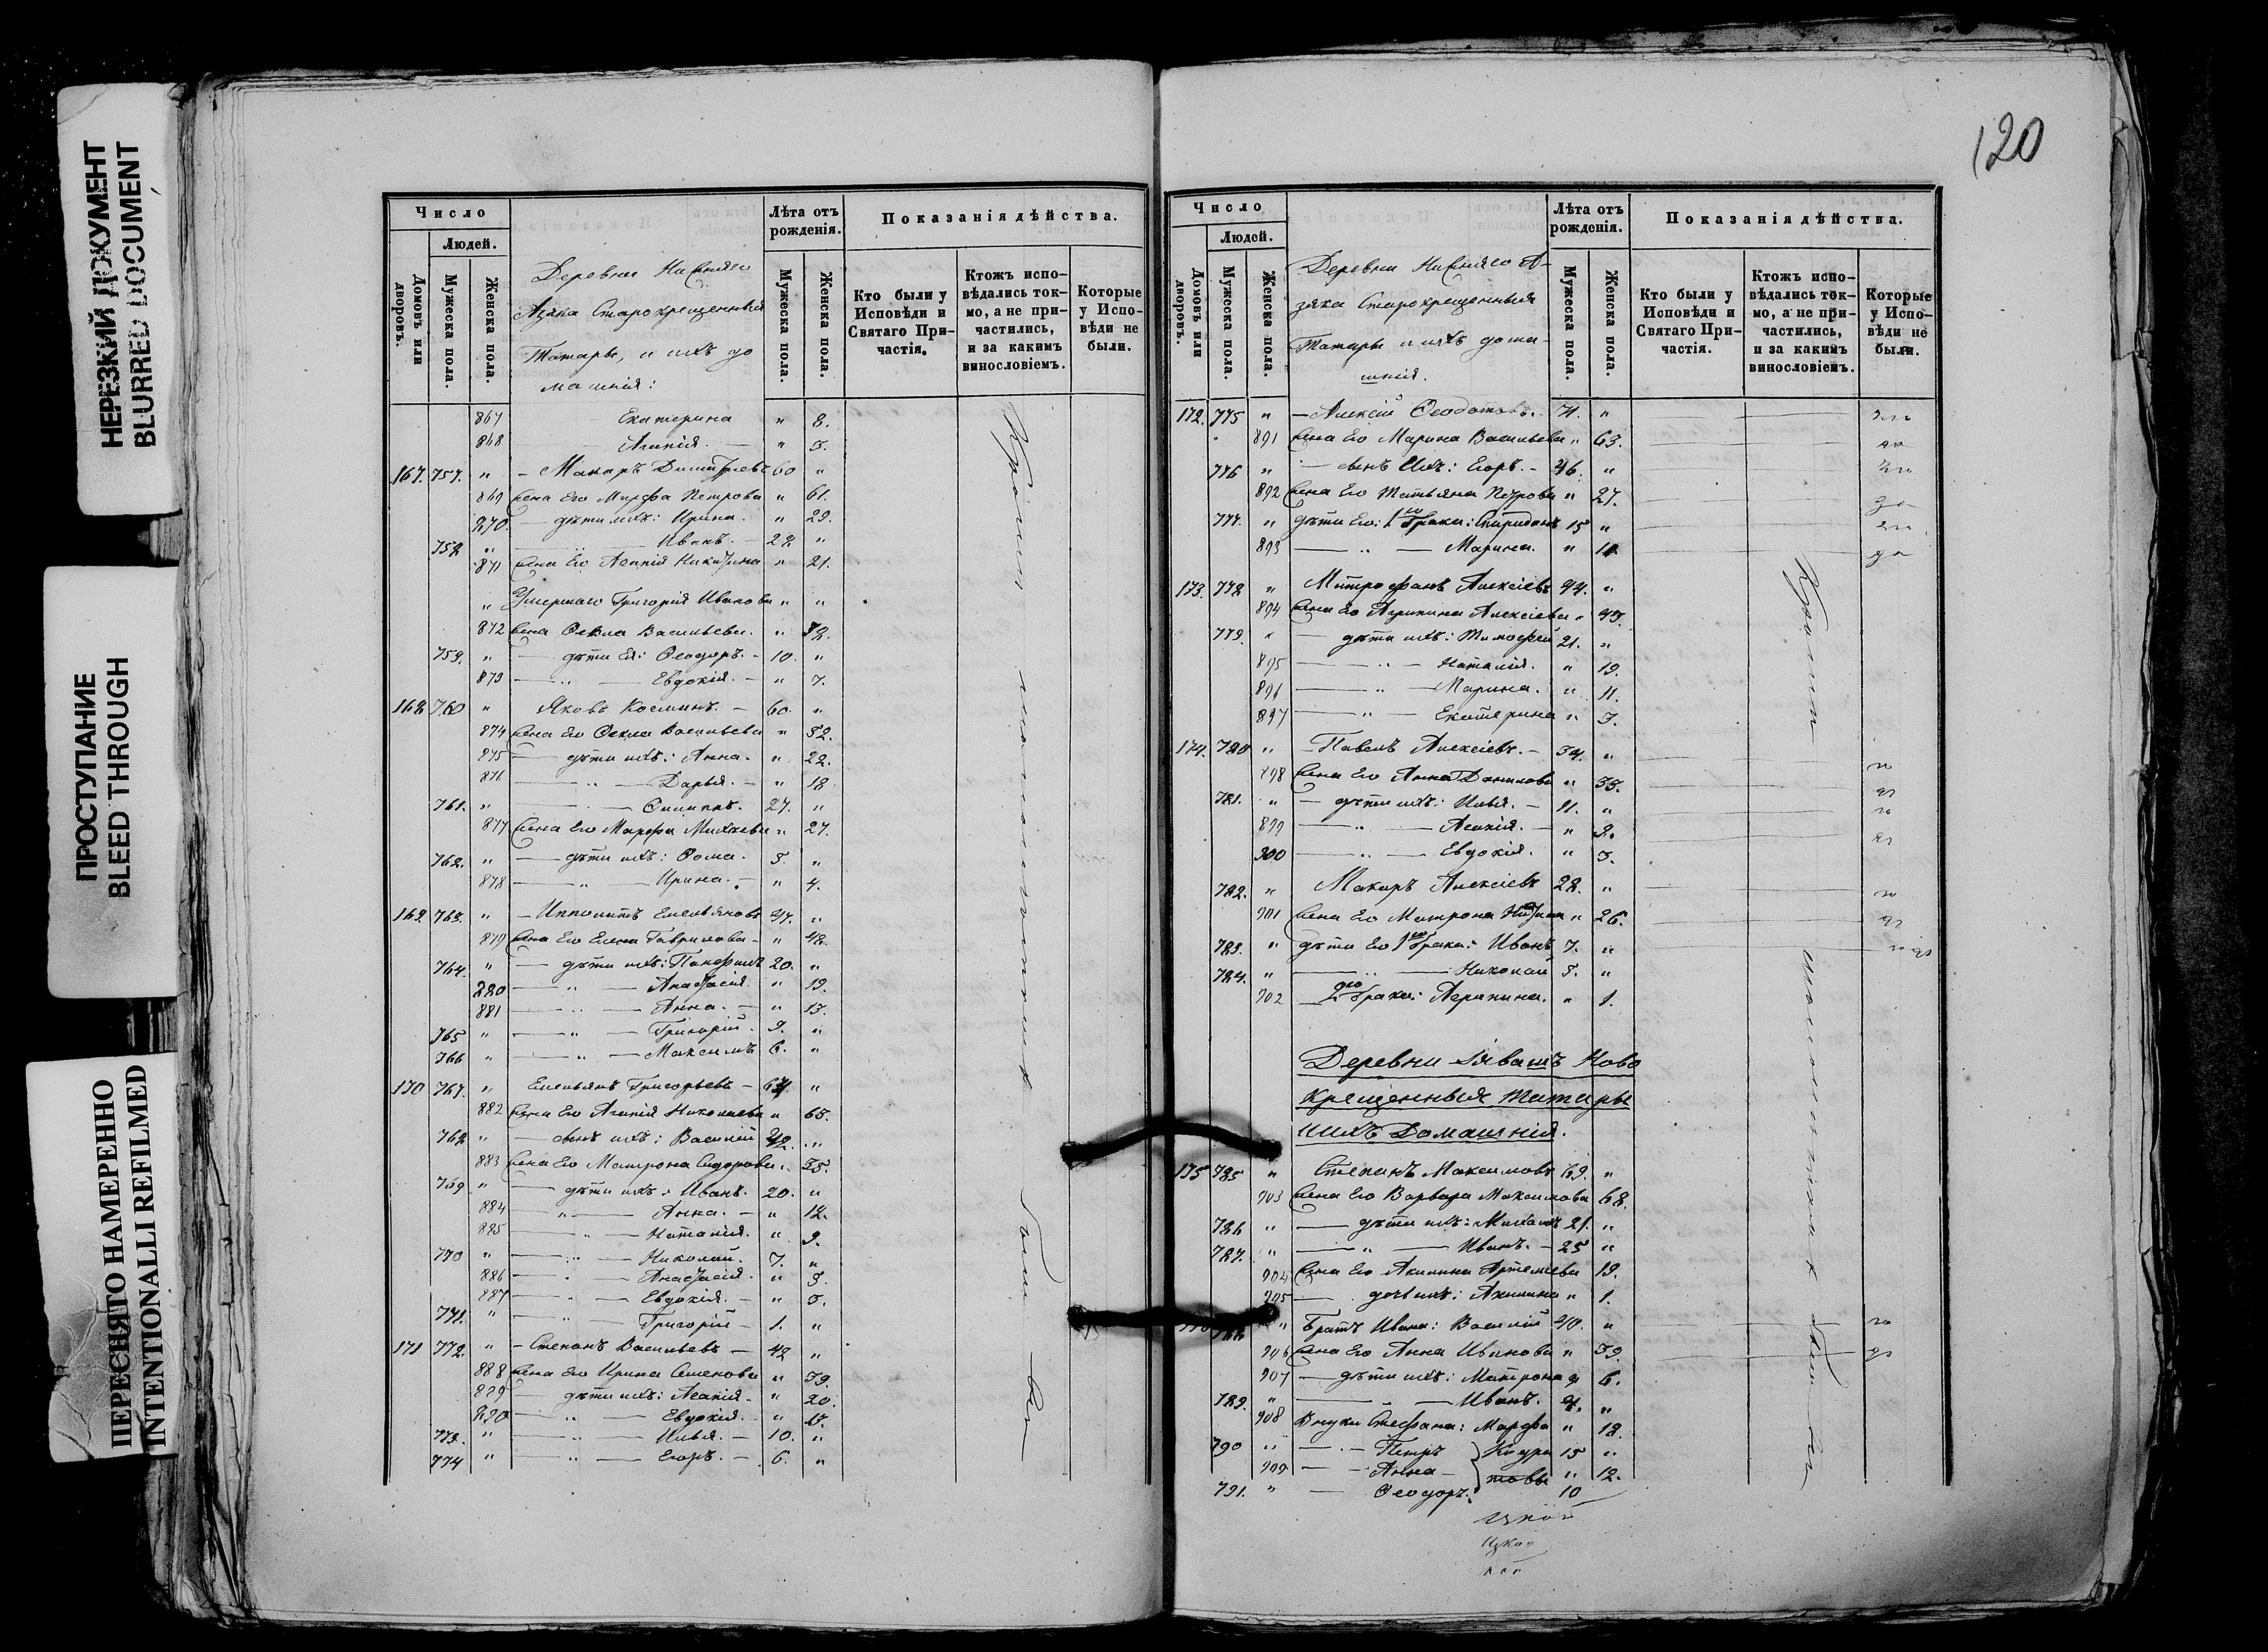 НЕРЕЗКИЙ ДОКУМЕНТ
BLURRED DOCUMENT
ПРОСТУПАНИЕ
BLEED THROUGH
ПЕРЕСНЯТО НАМЕРЕННО
INTENTIONALLI REFILMED
Число
Людей.
Домовъ или дворовъ.
Мужеска пола.
Женска пола.
Деревни Нижняго
Азяка Старокрещенныя
Татары, и ихъ до
машнія:
Лѣта отъ рожденія.
Мужеска пола.
Женска пола.
Показанія дѣйства.
Кто были у Исповѣди и Святаго При-частія.
Ктожъ испо-вѣдались ток-мо, а не при-частились, и за какимъ винословіемъ.
Которые у Испо-вѣди не были.
867 Екатерина " 8.
868 Агапія. — " 3.
167. 757. " — Макаръ Димитріевъ 60 "
869 Жена Его Марфа Петрова " 61.
870. — дѣти ихъ: Ирина. " 29.
758 " — Иванъ. — 22 "
871 Жена Его Агапія Никитина " 21.
" Умершаго Григорія Иванова " "
872 Жена Ѳекла Васильева. " 38.
759. " — дѣти Ея: Ѳеодоръ. — 10. "
873 — " — Евдокія. — " 7.
168 760 " Яковъ Косминъ. — 60. "
874 Жена Его Ѳекла Васильева " 52.
875 — дѣти ихъ: Анна. " 22.
876 — " — Дарья. — " 18
761. " — Филиппъ. 27. "
877 Жена Его Марфа Михеева " 27.
762. " — дѣти ихъ: Ѳома. 5. "
878 — " — Ирина. — " 4.
169 763. " — Ипполитъ Емельяновъ 47. "
879 Жена Его Елена Гаврилова — " 48.
764. " — дѣти ихъ: Панфилъ 20. "
880 — " — Анастасія " 19.
881 — " — Анна. — " 13.
765 " — " — Григорій. 9. "
766 " — " — Максимъ 6. "
170 767. " Емельянъ Григорьевъ — 64. "
882 Жена Его Агапія Николаева " 65.
768 " — сынъ ихъ: Василій 42. "
883 Жена Его Матрона Сидорова " 35.
769 " — дѣти ихъ: Иванъ. 20. "
884 — " — Анна. — " 12.
885 — " — Наталія. " 9.
770 " — " — Николай. 7. "
886 — " — Анастасія. " 5.
887 — " — Евдокія. — " 3.
771. " — " — Григорій — 1. "
171 772. " — Степанъ Васильевъ — 42 "
888 Жена Его Ирина Семенова " 39.
889 — дѣти ихъ: Агапія. " 20.
890 — " — Евдокія. " 17.
773. " — " — Илья. — 10. "
774 " — " — Егоръ. — 6. "
120
Число
Людей.
Домовъ или дворовъ.
Мужеска пола.
Женска пола.
Деревни Нижняго А-
зяка Старокрещенныя
Татары и ихъ дома-
шнія.
Лѣта отъ рожденія.
Мужеска пола.
Женска пола.
Показанія дѣйства.
Кто были у Исповѣди и Святаго При-частія.
Ктожъ испо-вѣдались ток-мо, а не при-частились, и за какимъ винословіемъ.
Которые у Испо-вѣди не были.
172. 775 " — Алексій Ѳеодотовъ. — 71. "
891 Жена Его Марина Васильева " 63.
776 " — сынъ Ихъ: Егоръ. — 46. "
892 Жена Его Татьяна Петрова " 27.
777. " дѣти Его: 1го брака: Спиридонъ 15 "
893 — " — Марина. " 11
173. 778 " Митрофанъ Алексіевъ 44. "
894 Жена Его Агрипина Алексіева " 43.
779. " — дѣти ихъ: Тимофей 21. "
895 — " — Наталія. " 19.
896 — " — Марина. " 11.
897 — " — Екатерина " 3.
174. 780 " — Павелъ Алексіевъ. — 34. "
898 Жена Его Анна Данилова " 33.
781. " — дѣти ихъ: Илья. — 11. "
899 — " — Агапія. — " 8.
900 — " — Евдокія. " 3.
782. " Макаръ Алексіевъ 28. "
901 Жена Его Матрона Никитина " 26.
783. " дѣти Его 1го брака: Иванъ 7. "
784. " — " — Николай 5. "
902 2го брака: Агрипина. " 1.
Деревни Ляvaшъ Ново
Крещенныя Татары
и ихъ Домашнія.
175 785 " Степанъ Максимовъ 69. "
903 Жена Его Варвара Максимова 68.
786 " — дѣти ихъ: Михаилъ 21. "
787. " — " — Иванъ. — 25 "
904 Жена Его Акилина Артемьева 19.
905 — дочь ихъ: Акилина " 1.
788 " Братъ Ивана: Василій 40. "
906 Жена Его Анна Иванова " 39.
907 — дѣти ихъ: Матрона " 6.
789. " — " — Иванъ. 4. "
908 Внуки Стефана: Марфа " 18.
790 " — Петръ Кодра 15 "
909 — Анна — товы " 12.
791. " — Ѳеодоръ. 10